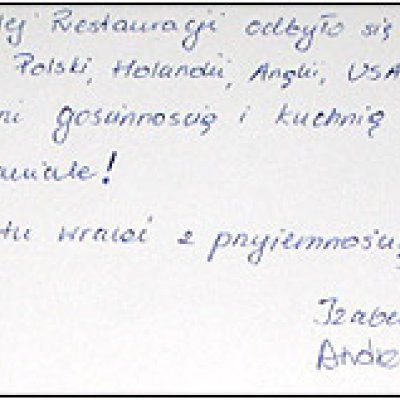 ej Restauracji odbyło się
Polski, Holandii, Anglii, USA
ni gościnnością i kuchnią
aniale!
tu wracać z przyjemnością
Izabe
Andrz